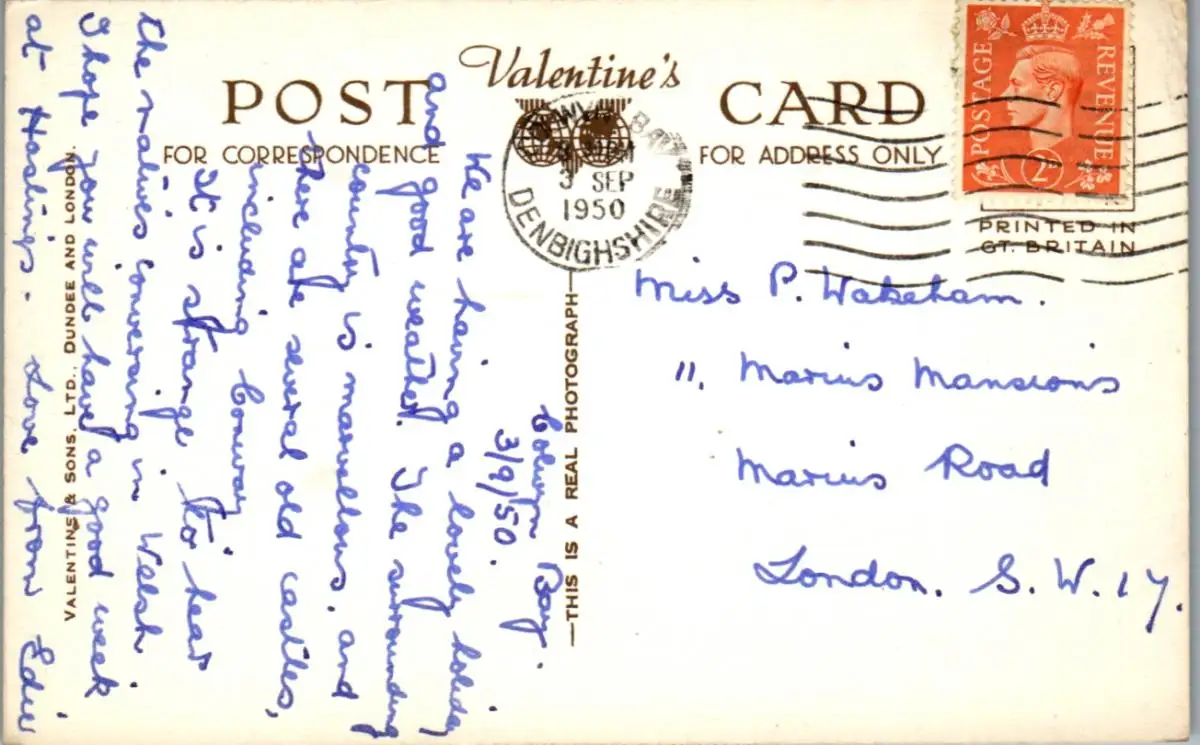 Valentine's
POST CARD
FOR CORRESPONDENCE
FOR ADDRESS ONLY
POSTAGE REVENUE
2D
PRINTED IN
GT. BRITAIN
COLWYN BAY
PM
3 SEP
1950
DENBIGHSHIRE
Colwyn Bay.
3/9/50.
We are having a lovely holiday
and good weather. The surrounding
country is marvellous, and
there are several old castles,
including Conway
It is strange to hear
the natives conversing in Welsh
I hope you will have a good week
at Hastings. Love from Edie
Miss P. Wakeham.
11, Marius Mansions
Marius Road
London. S.W.17.
—THIS IS A REAL PHOTOGRAPH—
VALENTINE & SONS, LTD., DUNDEE AND LONDON.